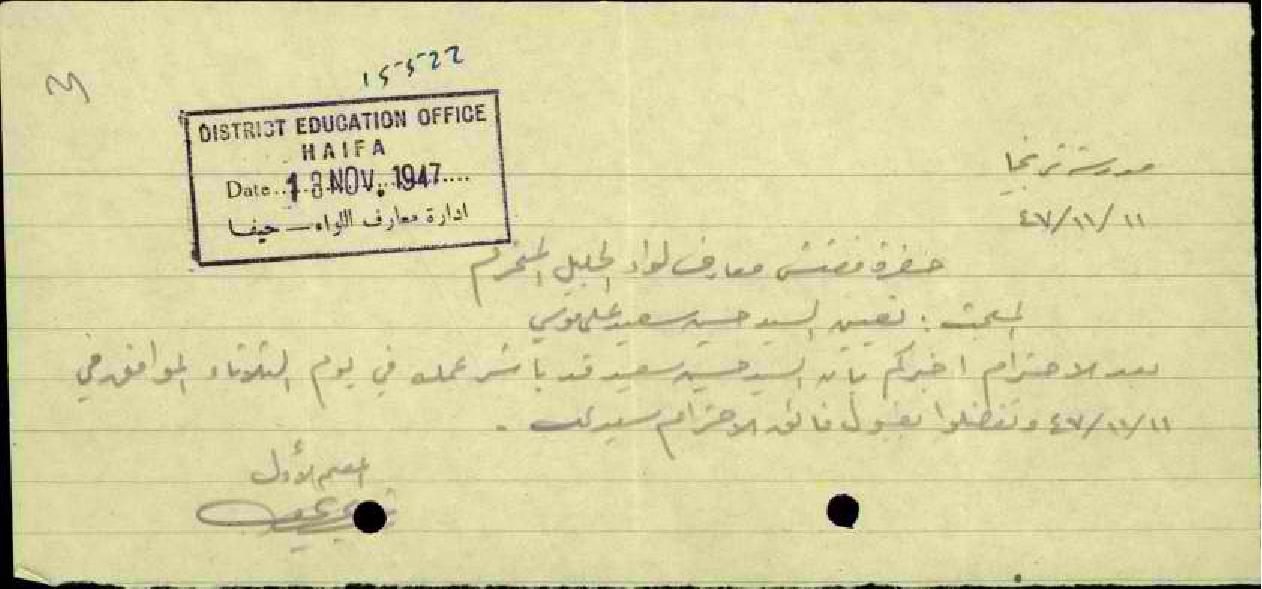 15522
DISTRICT EDUCATION OFFICE
HAIFA
Date....18 NOV. 1947....
ادارة معارف اللواء — حيفا
مدرسة ترشيحا
٤٧/١١/١١
حضرة مفتش معارف لواء الجليل المحترم
المبحث : تعيين السيد حسين سعيد علي موسى
بعد الاحترام اخبركم بأن السيد حسين سعيد قد باشر عمله في يوم الثلاثاء الموافق في
٤٧/١١/١١ وتفضلوا بقبول فائق الاحترام سيدي .
المعلم الأول